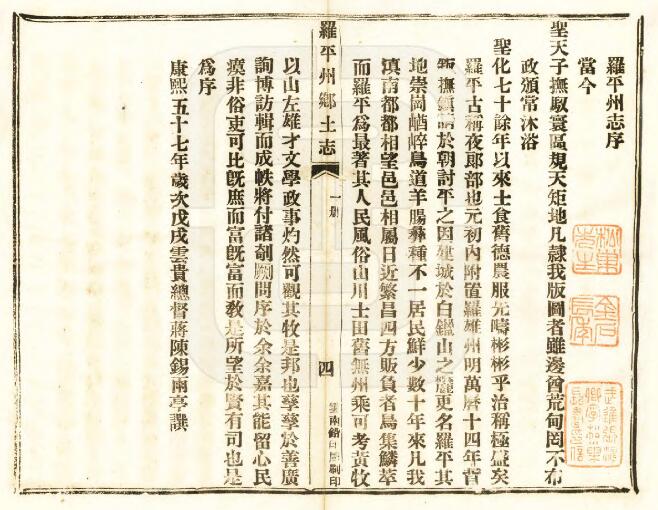 羅平州志序
當今
聖天子撫馭寰區規天矩地凡隸我版圖者雖邊酋荒甸罔不布
政頒常沐浴
聖化七十餘年以來士食舊德農服先疇彬彬乎治稱極盛矣
羅平古稱夜郎部也元初內附置羅雄州明萬曆十四年督
撫 請於朝討平之因建城於白蠟山之麓更名羅平其
地崇崗崷崒鳥道羊腸彝種不一居民鮮少數十年來凡我
滇南都都相望邑邑相屬日近繁昌四方販負者鳥集鱗萃
而羅平爲最著其人民風俗山川土田舊無州乘可考黃牧
羅平州鄉土志
一册
四
雲南 印刷 印
以山左雄才文學政事灼然可觀其牧是邦也孳孳於善廣
詢博訪輯而成帙將付諸剞劂問序於余余嘉其能留心民
瘼非俗吏可比旣庶而富旣富而敎是所望於賢有司也是
爲序
康熙五十七年歲次戊戌雲貴總督蔣陳錫雨亭譔